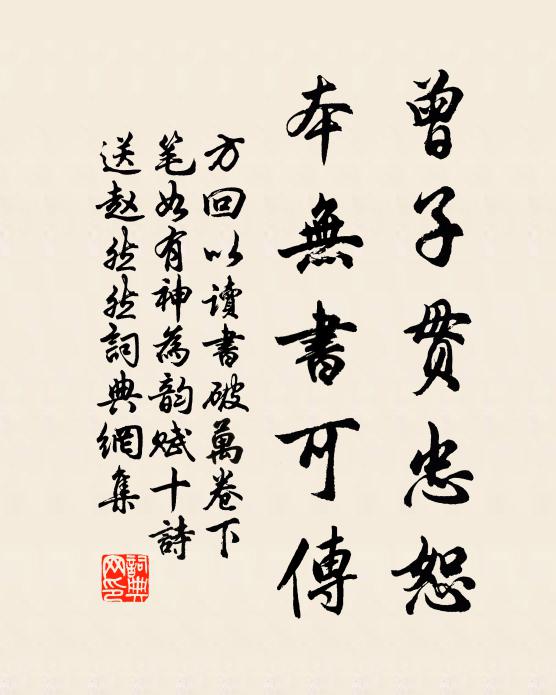 曾子贯忠恕
本無書可傳
方回以讀書破萬卷下
笔如有神為韵赋十詩
送赵然然詞典網集
詞典网印